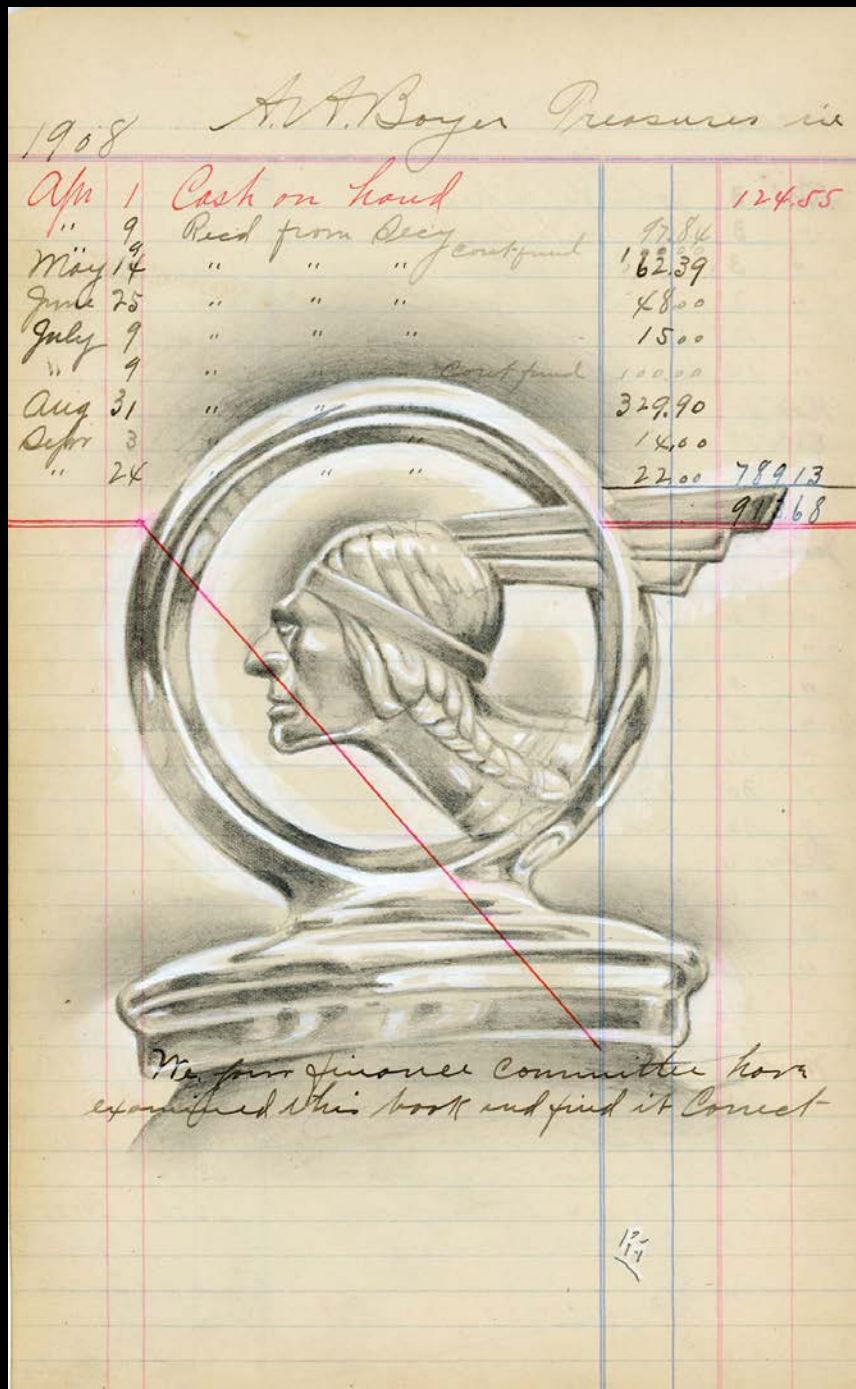 1908 A. A. Boyer Treasures in
Apr 1 Cash on hand 124.55
" 9 Recd from Secy 97.84
" 9 cont fund
May 14 " " " 162.39
June 25 " " " 48.00
July 9 " " " 15.00
" 9 " " cont fund 100.00
Aug 31 " " " 329.90
Sepr 3 " " " 14.00
" 24 " " " 22.00 789.13
68
We your finance committee have
examined this book and find it Correct